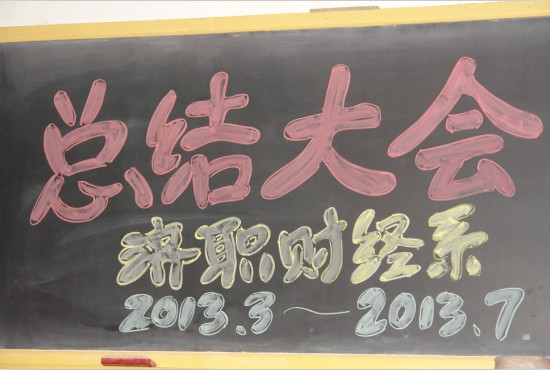 总结大会
济职财经系
2013.3～2013.7